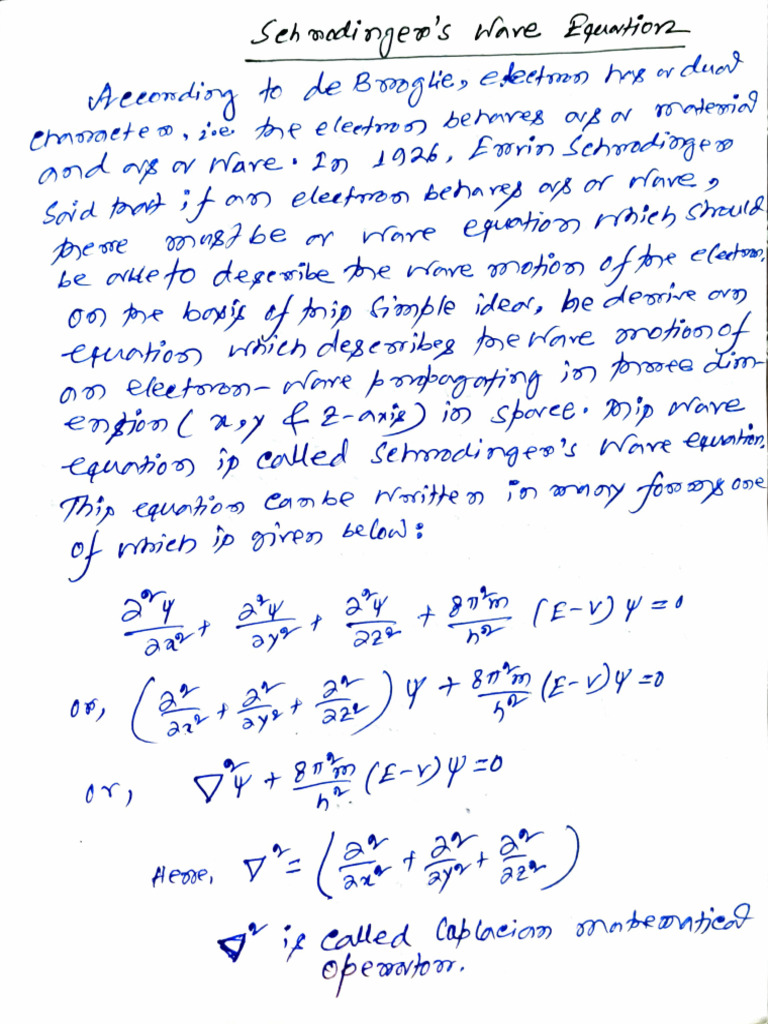 Schrodinger's Wave Equation
According to de Broglie, electron has a dual
character, i.e. the electron behaves as a material
and as a wave. In 1926, Erwin Schrodinger
said that if an electron behaves as a wave,
there must be a wave equation which should
be able to describe the wave motion of the electron.
on the basis of this simple idea, he derive an
equation which describes the wave motion of
an electron-wave propagating in three dim-
ension (x, y & z-axis) in space. This wave
equation is called Schrodinger's wave equation.
This equation can be written in many forms one
of which is given below:
∂²ψ/∂x² + ∂²ψ/∂y² + ∂²ψ/∂z² + 8π²m/h² (E-V) ψ = 0
or, (∂²/∂x² + ∂²/∂y² + ∂²/∂z²) ψ + 8π²m/h² (E-V) ψ = 0
or, ∇²ψ + 8π²m/h² (E-V) ψ = 0
Here, ∇² = (∂²/∂x² + ∂²/∂y² + ∂²/∂z²)
∇² is called Laplacian mathematical
operator.